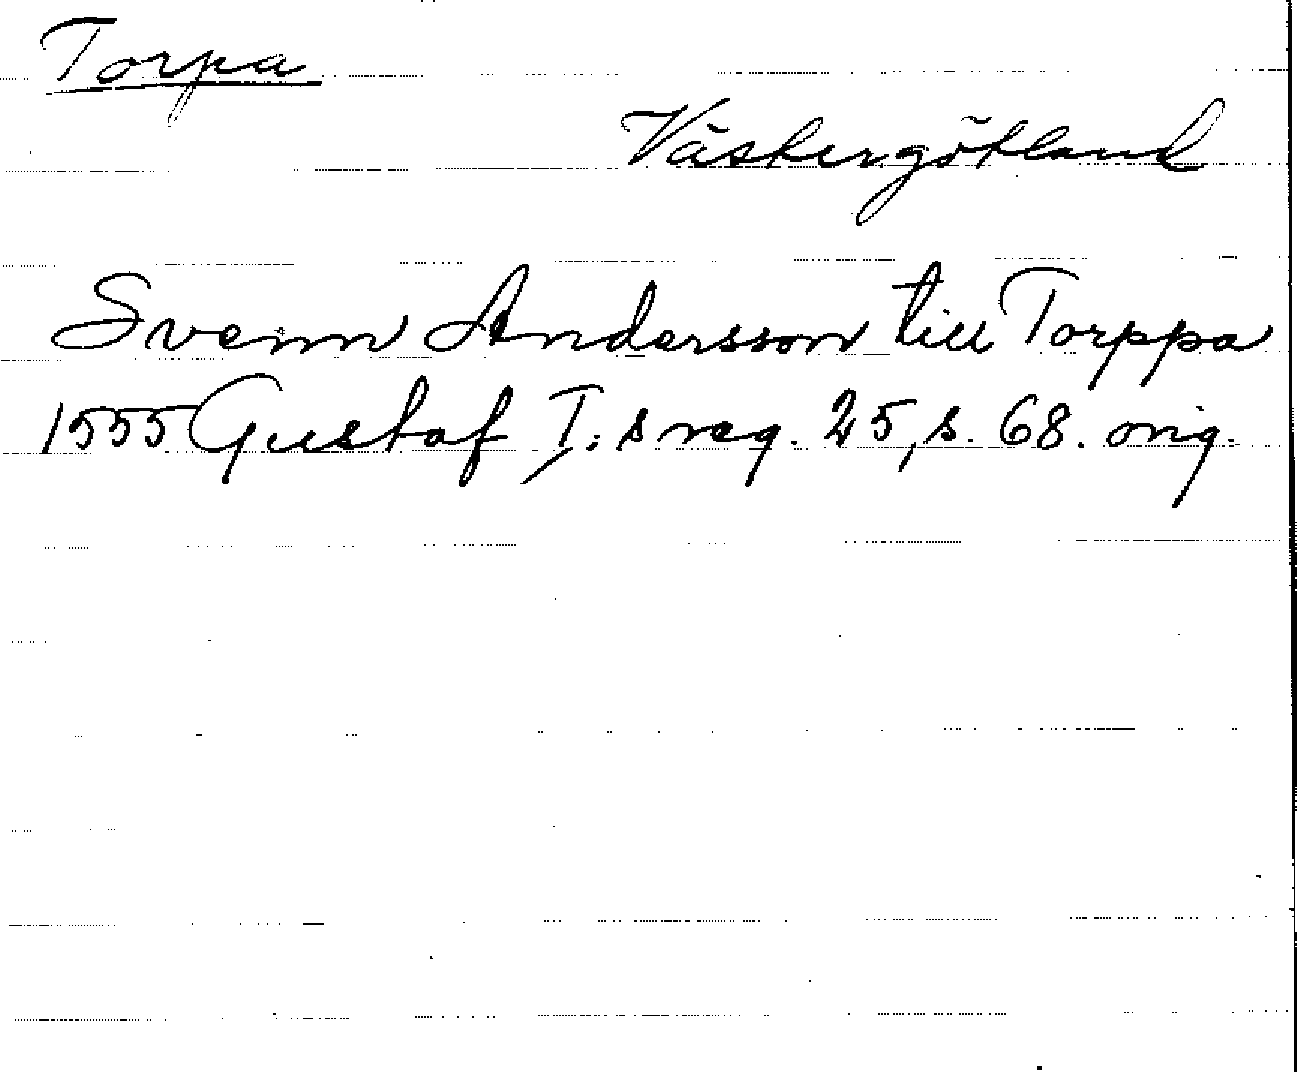 Torpa
Västergötland
Svenn Andersson till Torppa
1555 Gustaf I:s reg. 25, s. 68. orig.